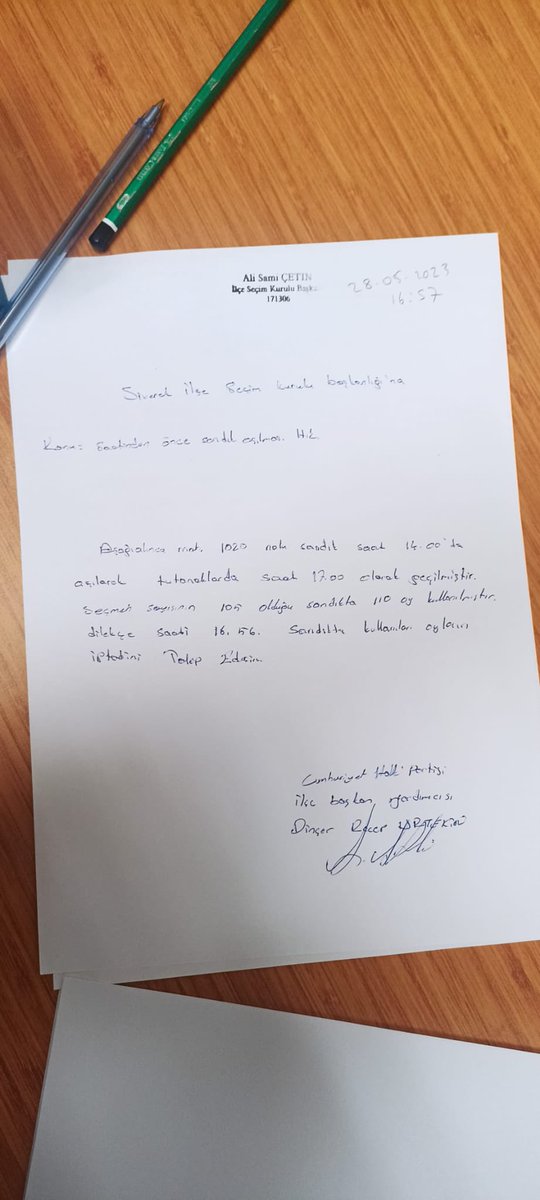 Ali Sami ÇETİN
İlçe Seçim Kurulu Başka
171306
28.05.2023
16:57
Siverek ilçe Seçim kurulu başkanlığı'na
Konu: saatinden önce sandık açılması. Hk
1020 nolu sandık saat 14.00'da
açılarak tutanaklarda saat 17.00 olarak geçilmiştir.
Seçmen sayısının 105 olduğu sandıkta 110 oy kullanılmıştır.
dilekçe saati 16.56. Sandıkta kullanılan oyların
iptalini Talep Ederim.
Cumhuriyet Halk Partisi
ilçe başkan yardımcısı
Dinçer Recep